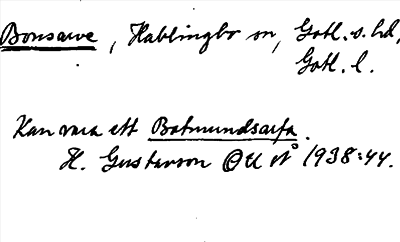 Bonsarve, Hablingbo sn, Gotl. s. hd,
Gotl. l.
Kan vara ett Botmundsarfa.
H. Gustavson OU nº 1938:44.